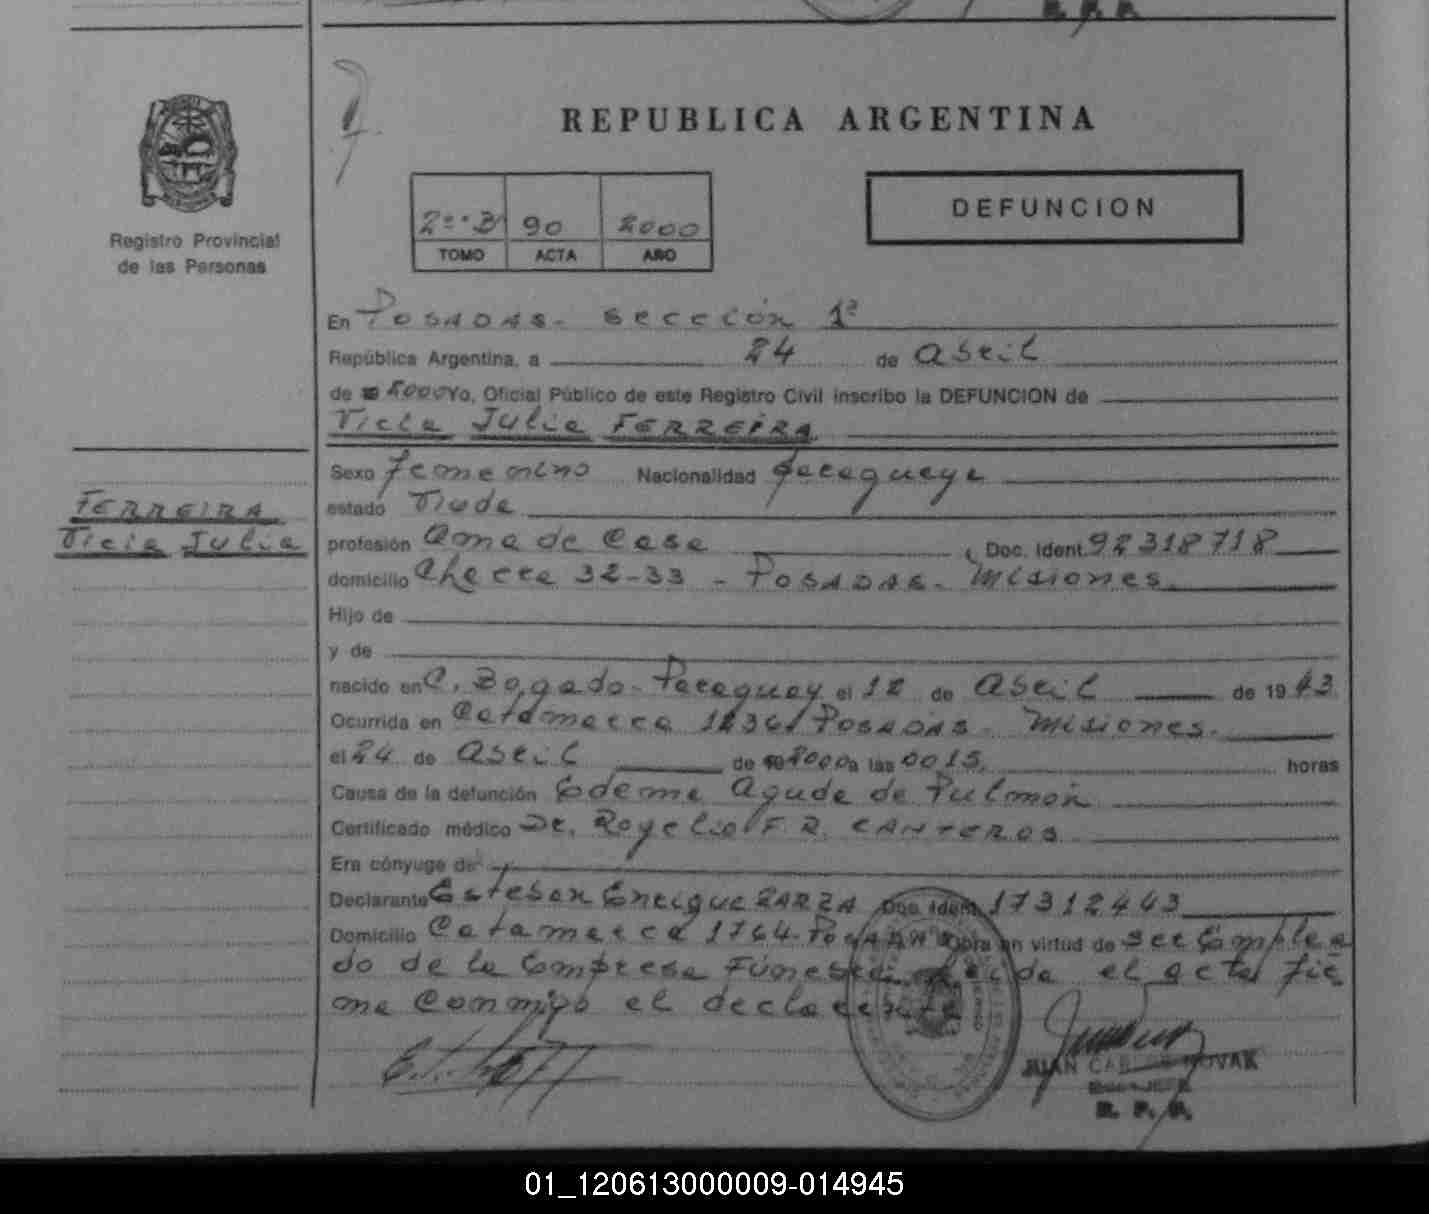 REPUBLICA ARGENTINA
DEFUNCION
2º B 90 2000
TOMO ACTA AÑO
Registro Provincial
de las Personas
En POSADAS - Sección 1ª
República Argentina, a 24 de Abril
de 2000 Yo, Oficial Público de este Registro Civil inscribo la DEFUNCION de
Julia FERREIRA
Sexo Femenino Nacionalidad Paraguaya
FERREIRA
Julia
estado Viuda
profesión Ama de Casa Doc. Ident. 92318718
domicilio Chacra 32-33 - POSADAS - Misiones
Hijo de
y de
nacido en C. Bogado - Paraguay el 12 de Abril de 1943
Ocurrida en Catamarca POSADAS - Misiones.
el 24 de Abril de 2000 a las 0015 horas
Causa de la defunción Edema Agudo de Pulmón
Certificado médico Dr. Rogelio F. R. CANTEROS
Era cónyuge de
Declarante Esteban Enrique ZARZA Doc. Ident. 17312443
Domicilio Catamarca 1764 - POSADAS Obra en virtud de ser Emplea
do de la Empresa Fúnebre. el acta fir
ma conmigo el declarante
JUAN CARLOS NOVAK
R. P. P.
01_120613000009-014945